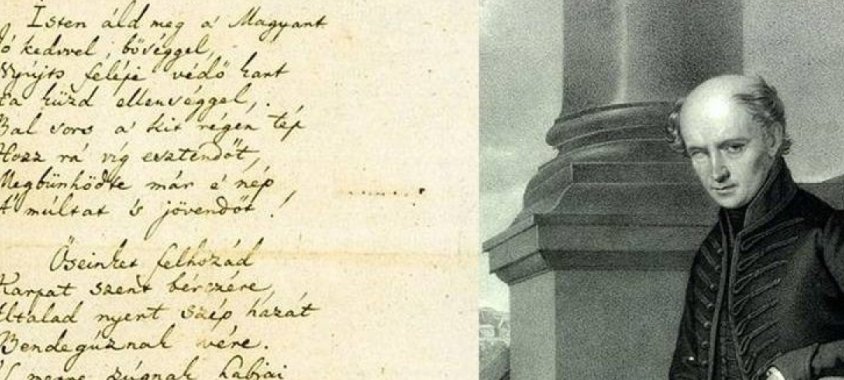 Isten áld meg a' Magyart
ó kedvvel, bőséggel,
Nyújts feléje védő kart
Ha küzd ellenséggel,
Bal sors a' kit régen tép
Hozz rá víg esztendőt,
Megbünhödte már e' nép
A' múltat 's jövendőt!
Őseinket felhozád
Kárpát szent bérczére,
Általad nyert szép hazát
Bendegúznak vére.
'S merre zúgnak habjai